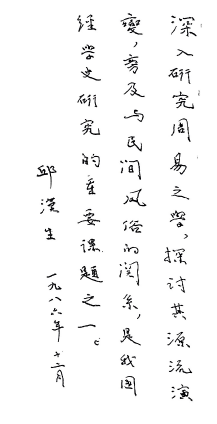 深入研究周易之学，探讨其源流演
变，旁及与民间风俗的関系，是我国
经学史研究的重要课题之一。
邱漢生
一九八六年十二月